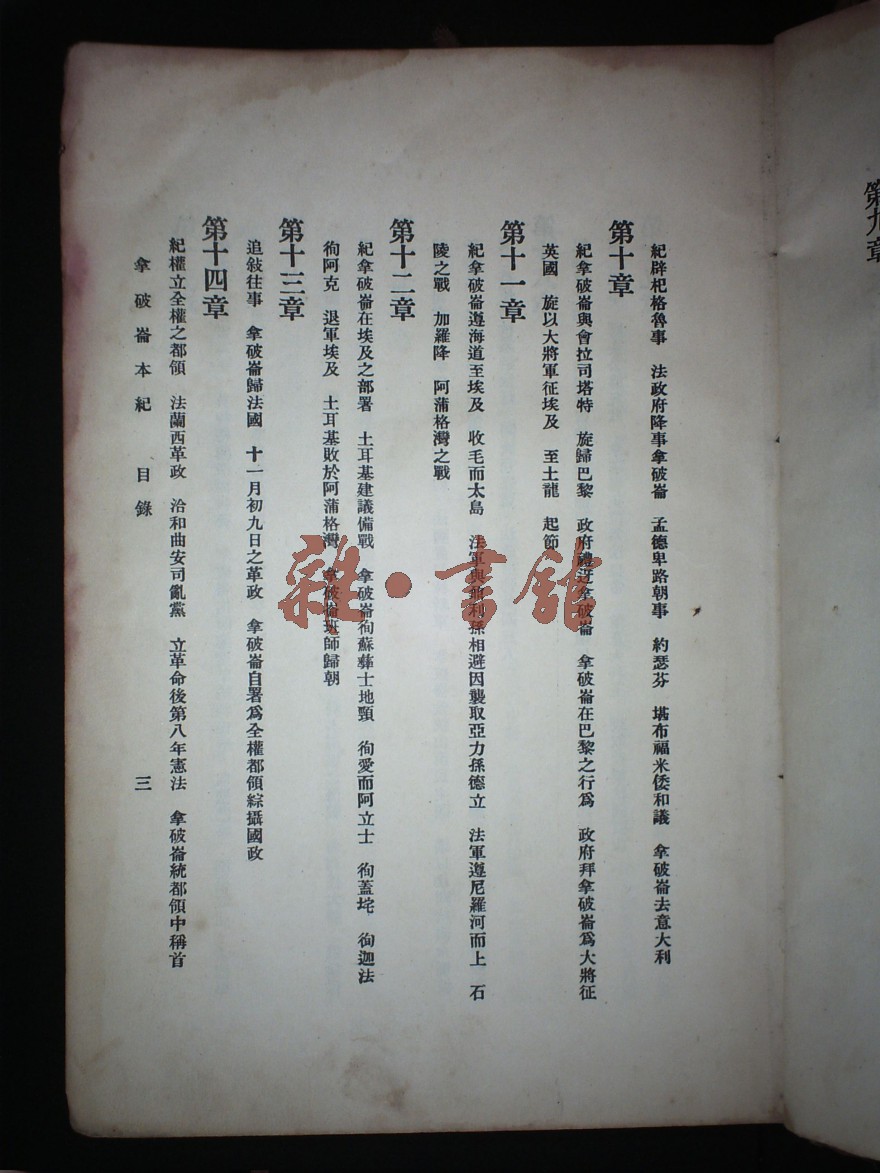 第九章
紀辟杞格魯事　法政府降事拿破崙　孟德卑路朝事　約瑟芬　堪布福米倭和議　拿破崙去意大利
第十章
紀拿破崙與會拉司塔特　旋歸巴黎　政府禮迓拿破崙　拿破崙在巴黎之行為　政府拜拿破崙為大將征
英國　旋以大將軍征埃及　至土龍　起節
第十一章
紀拿破崙遵海道至埃及　收毛而太島　法軍與鼐利孫相避因襲取亞力孫德立　法軍遵尼羅河而上　石
陵之戰　加羅降　阿蒲格灣之戰
第十二章
紀拿破崙在埃及之部署　土耳基建議備戰　拿破崙徇蘇彝士地頸　徇愛而阿立士　徇蓋垞　徇迦法
徇阿克　退軍埃及　土耳基敗於阿蒲格灣　拿破崙班師歸朝
第十三章
追敍往事　拿破崙歸法國　十一月初九日之革政　拿破崙自署為全權都領綜攝國政
第十四章
紀權立全權之都領　法蘭西革政　洽和曲安司亂黨　立革命後第八年憲法　拿破崙統都領中稱首
拿破崙本紀　目錄　三
雜·書館